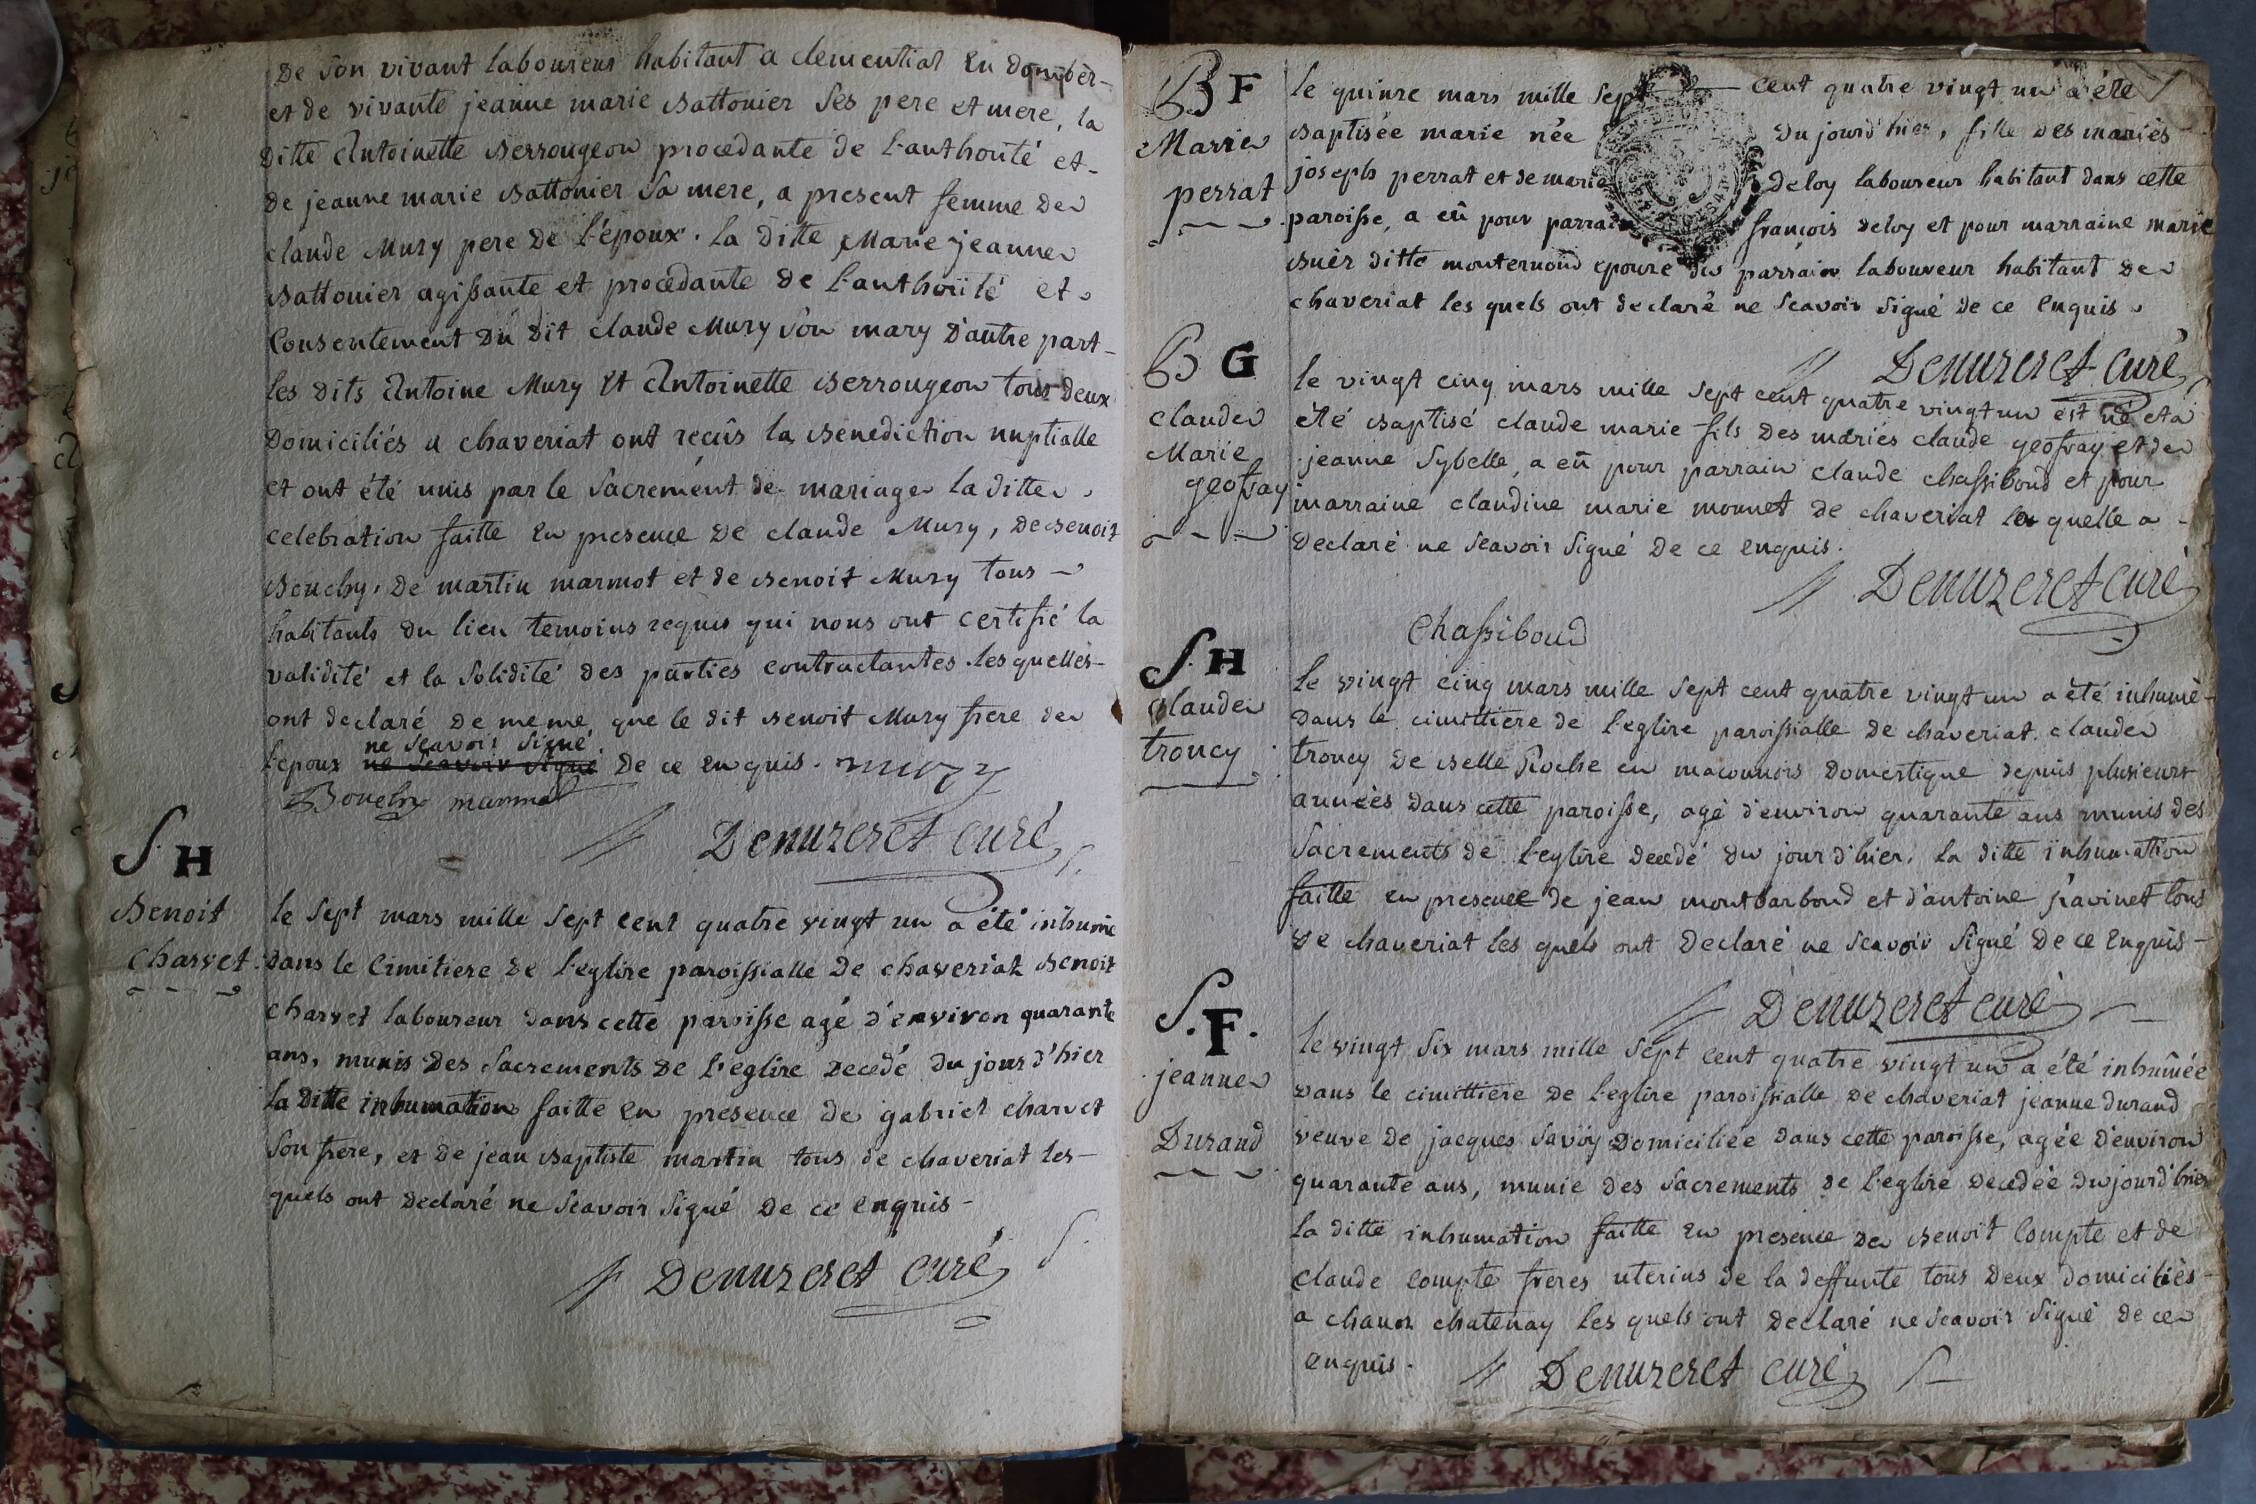 De son vivant laboureur habitant a clementiat en dombes-
et de vivante jeanne marie Battonier ses pere et mere, la
ditte Antoinette Berrougeon procedante de l'authorité et-
de jeanne marie Battonier sa mere, a present femme de
claude Mury pere de l'époux. la ditte Marie jeanne
Battonier agissante et procedante de l'authorité et
Consentement du dit claude Mury son mary d'autre part-
les dits Antoine Mury et Antoinette Berrougeon tous deux
Domiciliés a chaveriat ont reçûs la Benediction nuptialle
et ont été unis par le Sacrement de mariage la ditte
celebration faitte en presence de claude Mury, de Benoit
Bouchy, de martin marmot et de Benoit Mury tous
habitants du lieu temoins requis qui nous ont certifié la
validité et la solidité des parties contractantes. les quelles-
ont declaré de meme que le dit Benoit Mury frere de
ne scavoir signé
l'epoux ne scavoir signé de ce enquis. mury
Bouchy marmot
Denuzeret curé
S. H
Benoit
charvet.
le sept mars mille sept cent quatre vingt un a été inhumé
dans le Cimitiere de l'eglise paroissialle de chaveriat Benoit
charvet laboureur dans cette paroisse agé d'environ quarante
ans, munis des sacrements de l'eglise decedé du jour d'hier
la ditte inhumation faitte en presence de gabriel charvet
son frere, et de jean Baptiste martin tous de chaveriat les-
quels ont declaré ne scavoir signé de ce enquis-
Denuzeret curé
B F
Marie
perrat
le quinze mars mille sept cent quatre vingt un a été
Baptisée marie née du jour d'hier, fille des mariés
joseph perrat et de marie Deloy laboureur habitant dans cette
paroisse, a eû pour parrain françois Deloy et pour marraine marie
Buer ditte monternoud epouse du parrain laboureur habitant de
chaveriat les quels ont declaré ne scavoir signé de ce enquis.
Denuzeret curé
B G
claude
Marie
geofray
le vingt cinq mars mille sept cent quatre vingt un est né et a
été Baptisé claude marie fils des mariés claude geofray et de
jeanne Sybelle, a eû pour parrain claude chassiboud et pour
marraine claudine marie monnet de chaveriat la quelle a
declaré ne scavoir signé de ce enquis.
Denuzeret curé
Chassiboud
S. H
Claude
troncy
le vingt cinq mars mille sept cent quatre vingt un a été inhumé-
dans le cimittiere de l'eglise paroissialle de chaveriat claude
troncy de Belle Roche en maconnois domestique depuis plusieurs
années dans cette paroisse, agé d'environ quarante ans munis des
Sacrements de l'eglise decedé du jour d'hier. la ditte inhumation
faitte en presence de jean montbarboud et d'antoine ravinet tous
de chaveriat les quels ont declaré ne scavoir signé de ce enquis-
Denuzeret curé
S. F.
jeanne
Durand
le vingt six mars mille sept cent quatre vingt un a été inhumée
dans le cimittiere de l'eglise paroissialle de chaveriat jeanne durand
veuve de jacques Savöy domiciliée dans cette paroisse, agée d'environ
quarante ans, munie des sacrements de l'eglise decedée du jour d'hier
la ditte inhumation faitte en presence de Benoit Compte et de
claude Compte freres uterins de la deffunte tous deux domiciliés-
a chanoz chatenay les quels ont declaré ne scavoir signé de ce
enquis. Denuzeret curé